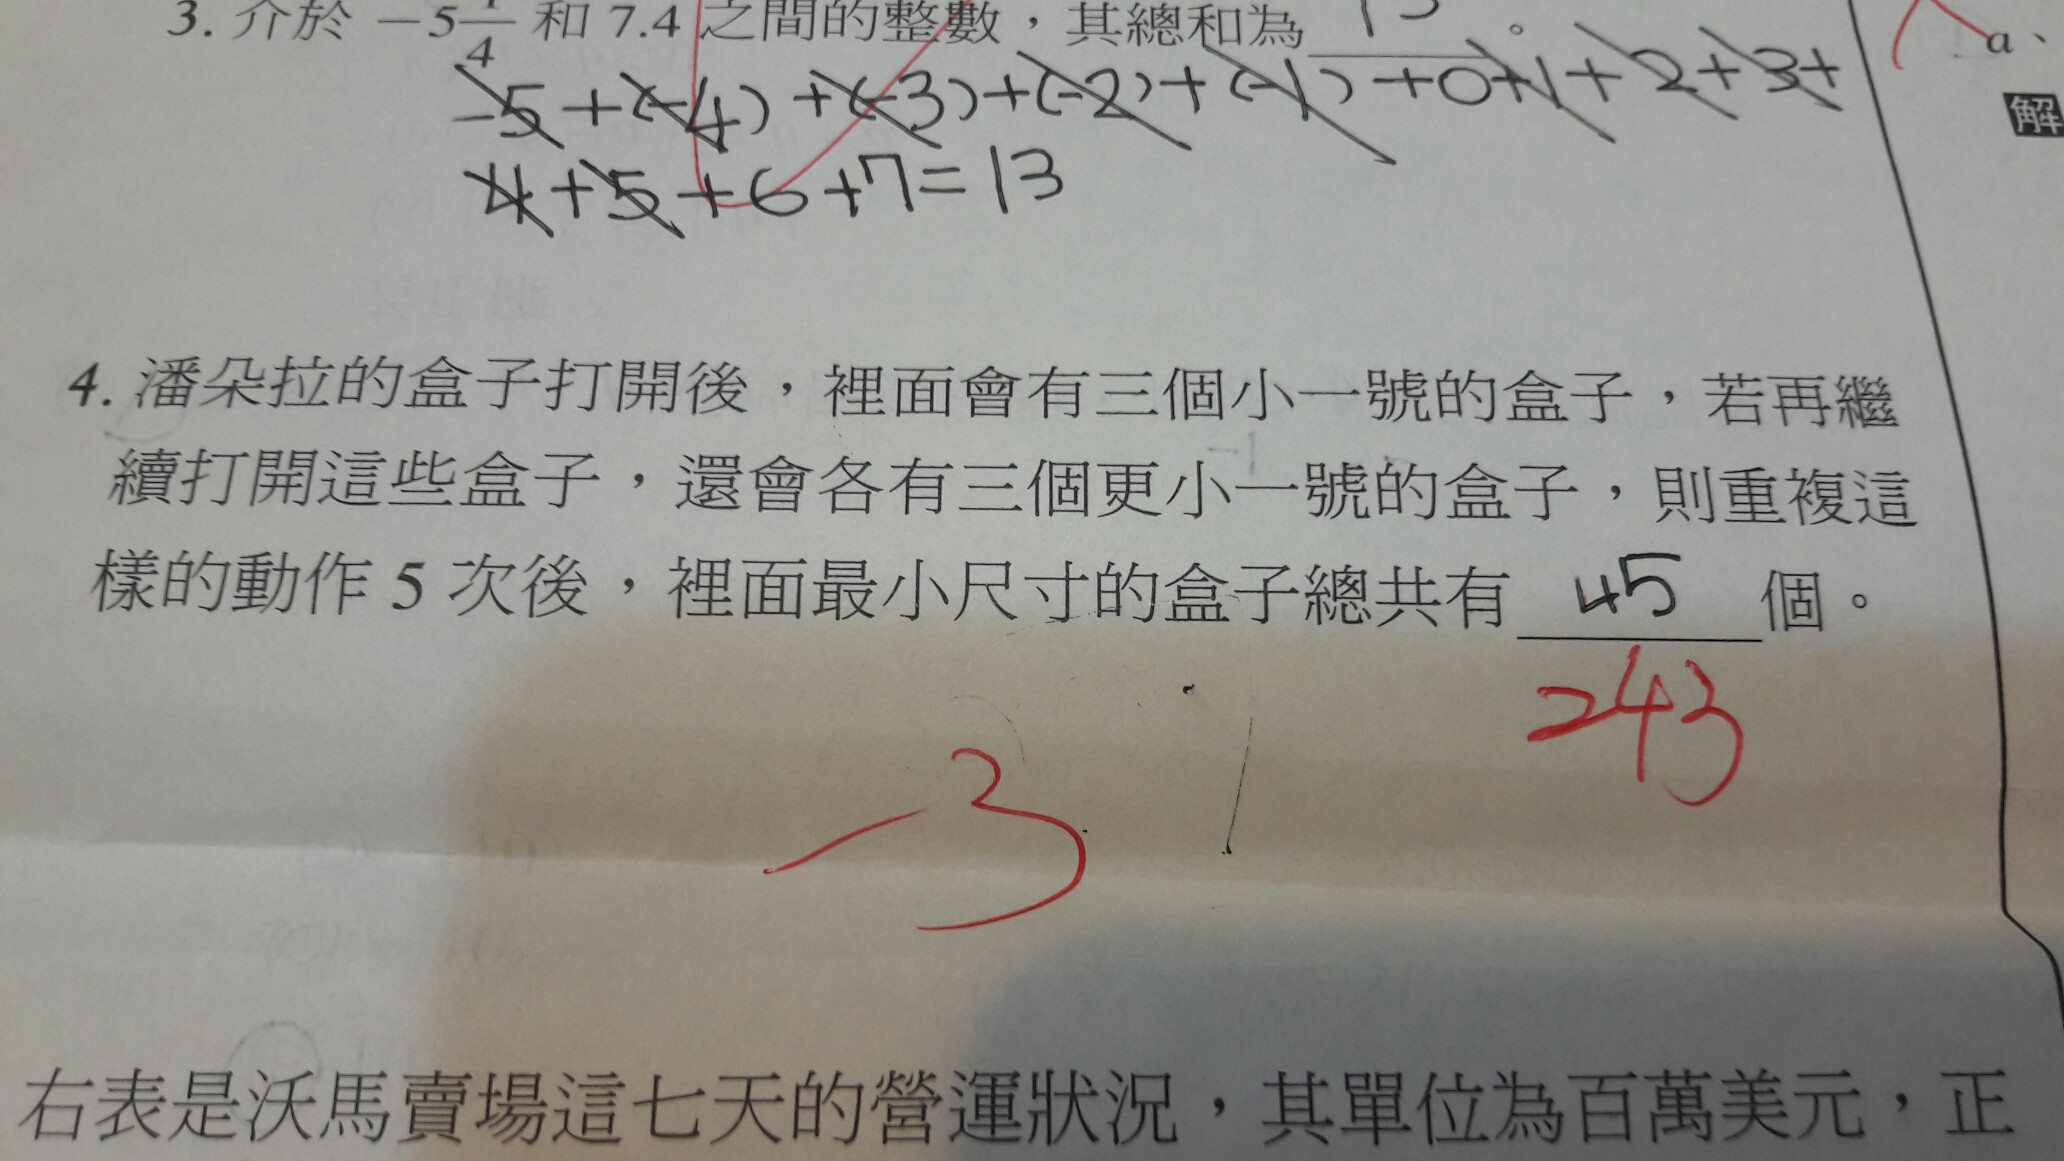 3. 介於 −5 1/4 和 7.4 之間的整數，其總和為 13 。
-5+(-4)+(-3)+(-2)+(-1)+0+1+2+3+
4+5+6+7=13
4. 潘朵拉的盒子打開後，裡面會有三個小一號的盒子，若再繼
續打開這些盒子，還會各有三個更小一號的盒子，則重複這
樣的動作 5 次後，裡面最小尺寸的盒子總共有 45 個。
243
-3
右表是沃馬賣場這七天的營運狀況，其單位為百萬美元，正
a、
解